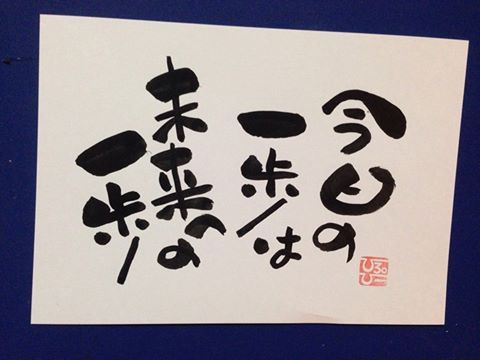 今日の
一歩は
未来への
一歩
ひろぴー